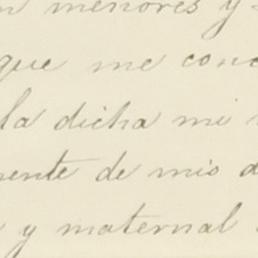 n menores y
que me conc
la dicha mi
mente de mis d
y maternal